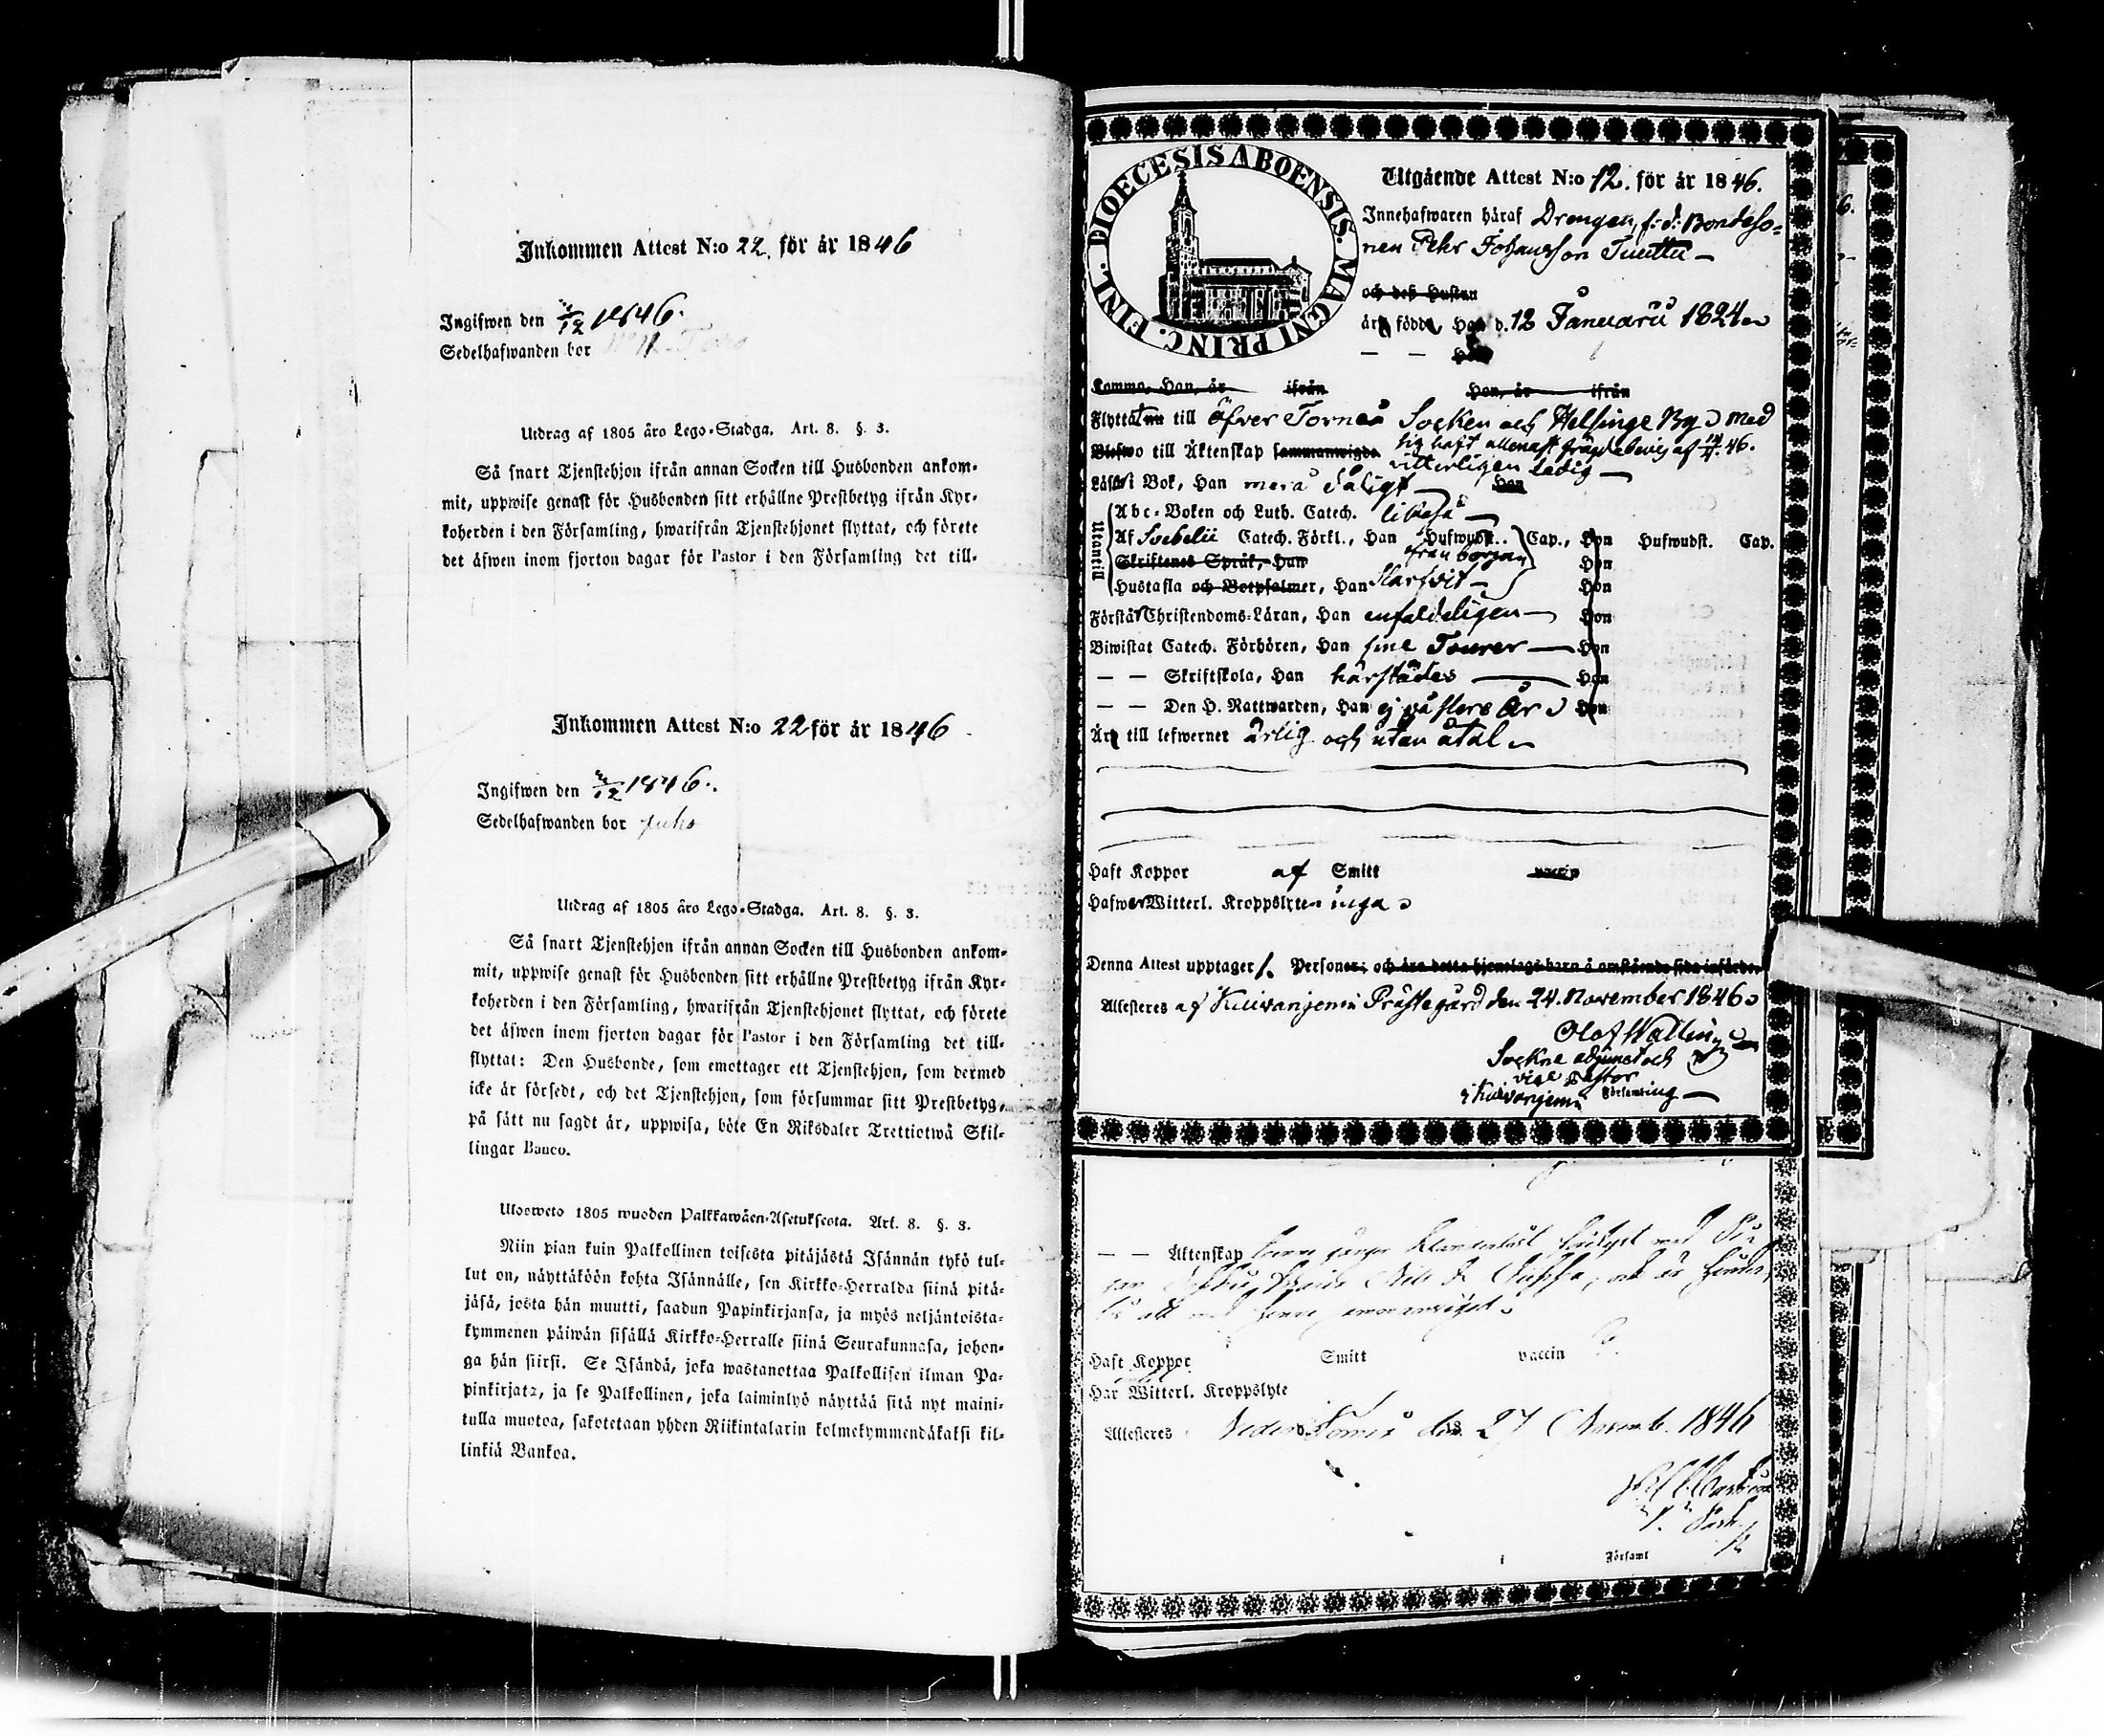 Inkommen Attest N:o 22. för år 1846
Ingifwen den /12 1846.
Sedelhafwanden bor
Utdrag af 1805 åro Lego-Stadga. Art. 8. §. 3.
Så snart Tjenstehjon ifrån annan Socken till Husbonden ankom-
mit, uppwise genast för Husbonden sitt erhållne Prestbetyg ifrån Kyr-
koherden i den Församling, hwarifrån Tjenstehjonet flyttat, och förete
det äfwen inom fjorton dagar för Pastor i den Församling det till-
Inkommen Attest N:o 22 för år 1846
Ingifwen den /12 1846.
Sedelhafwanden bor Juho
Utdrag af 1805 åro Lego-Stadga. Art. 8. §. 3.
Så snart Tjenstehjon ifrån annan Socken till Husbonden ankom-
mit, uppwise genast för Husbonden sitt erhållne Prestbetyg ifrån Kyr-
koherden i den Församling, hwarifrån Tjenstehjonet flyttat, och förete
det äfwen inom fjorton dagar för Pastor i den Församling det till-
flyttat: Den Husbonde, som emottager ett Tjenstehjon, som dermed
icke är försedt, och det Tjenstehjon, som försummar sitt Prestbetyg,
på sätt nu sagdt är, uppwisa, böte En Riksdaler Trettiotwå Skil-
lingar Banco.
Ulosweto 1805 wuoden Palkkawäen-Asetuksesta. Art. 8. §. 3.
Niin pian kuin Palkollinen toisesta pitäjästä Isännän tykö tul-
lut on, näyttäköön kohta Isännälle, sen Kirkko-Herralda siinä pitä-
jäsä, josta hän muutti, saadun Papinkirjansa, ja myös neljäntoista-
kymmenen päiwän sisällä Kirkko-Herralle siinä Seurakunnasa, johon-
ga hän siirsi. Se Isändä, joka wastanottaa Palkollisen ilman Pa-
pinkirjata, ja se Palkollinen, joka laiminlyö näyttää sitä nyt maini-
tulla muotoa, sakotetaan yhden Riikintalarin kolmekymmendäkaksi kil-
linkiä Bankoa.
DIOECESIS ABOENSIS. MAGNI PRINC. FINL.
Utgående Attest N:o 12. för år 1846.
Innehafwaren häraf Drengen, f: d: Bondeso-
nen Pehr Johansson Tuuttu
och deß Hustru
äro födde, Han d. 12 Januarii 1824
— — Hon
Komma, Han, år ifrån Hon, år ifrån
Flytta nu till Öfver Torneå Socken och Helsinge By med
Blefwo till Äktenskap sammanwigde
vitterligen ledig
Läsa i Bok, Han Hon
Utantill
Abc-Boken och Luth. Catech.
Af Svebelii Catech. Förkl., Han Hufwudst. Cap., Hon Hufwudst. Cap.
från början
Skriftenes Språk, Han Hon
Hustafla och Botpsalmer, Han Slarfvit Hon
Förstår Christendoms-Läran, Han enfaldeligen Hon
Biwistat Catech. Förhören, Han sine Tourer Hon
— — Skriftskola, Han härstädes Hon
— — Den H. Nattwarden, Han Hon
Äro till lefwernet ärlig och utan åtal
Haft Koppor af Smitt vaccin
Hafwer Witterl. Kroppslyten inga
Denna Attest upptager 1. Personer; och äro detta hjonelags barn å omstående sida införde.
Attesteres af Kuivaniemi Prästegård den 24. November 1846
Olof Wallin
Sockne adjunct och
vice Pastor
i Kuivaniemi Församling
— — Äktenskap
Haft Koppor Smitt vaccin
Har Witterl. Kroppslyte
Attesteres Neder Torneå den 27 Novemb. 1846
i Församl